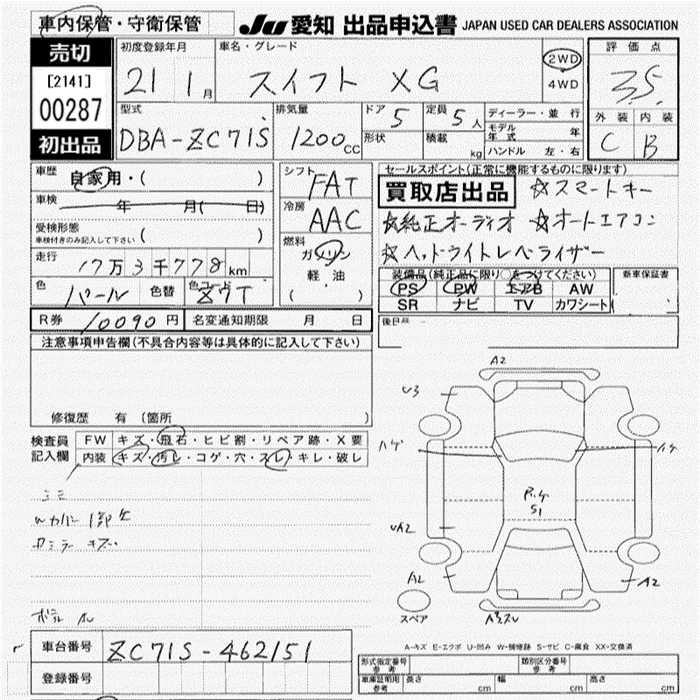 車内保管・守衛保管
JU 愛知 出品申込書 JAPAN USED CAR DEALERS ASSOCIATION
売切
[2141]
00287
初出品
初度登録年月
21 1月
車名・グレード
スイフト XG
2WD
4WD
評価点
3.5
外装 内装
C B
型式
DBA-ZC71S
排気量
1200cc
ドア 5
形状
定員 5人
積載 kg
ディーラー・並行
モデル年式 年
ハンドル 左・右
車歴
自家用・( )
車検
年 月( 日)
受検形態
車検付きのみ記入して下さい ( )
走行
17万3千778km
色 パール 色替 色コード Z7T
シフト
FAT
冷房
AAC
燃料
ガソリン
軽油
( )
セールスポイント(正常に機能するものに限ります)
買取店出品 ☆スマートキー
☆純正オーディオ ☆オートエアコン
☆ヘッドライトレベライザー
装備品(純正品に限り○をつけてください)
PS PW エアB AW
SR ナビ TV カワシート
新車保証書
後日品
R券 10090円 名変通知期限 月 日
注意事項申告欄(不具合内容等は具体的に記入して下さい)
修復歴 有 (箇所 )
検査員
記入欄
FW キズ・飛石・ヒビ割・リペア跡・X要
内装 キズ・汚レ・コゲ・穴・スレ・キレ・破レ
A2
U3
ハゲ
ハゲ
S1
UA2
A2
A2
スペア
A-キズ E-エクボ U-凹み W-補修跡 S-サビ C-腐食 XX-交換済
車台番号 ZC71S-462151
登録番号
型式指定番号
参考
類別区分番号
参考
車庫証明用
参考
長さ cm 幅 cm 高さ cm